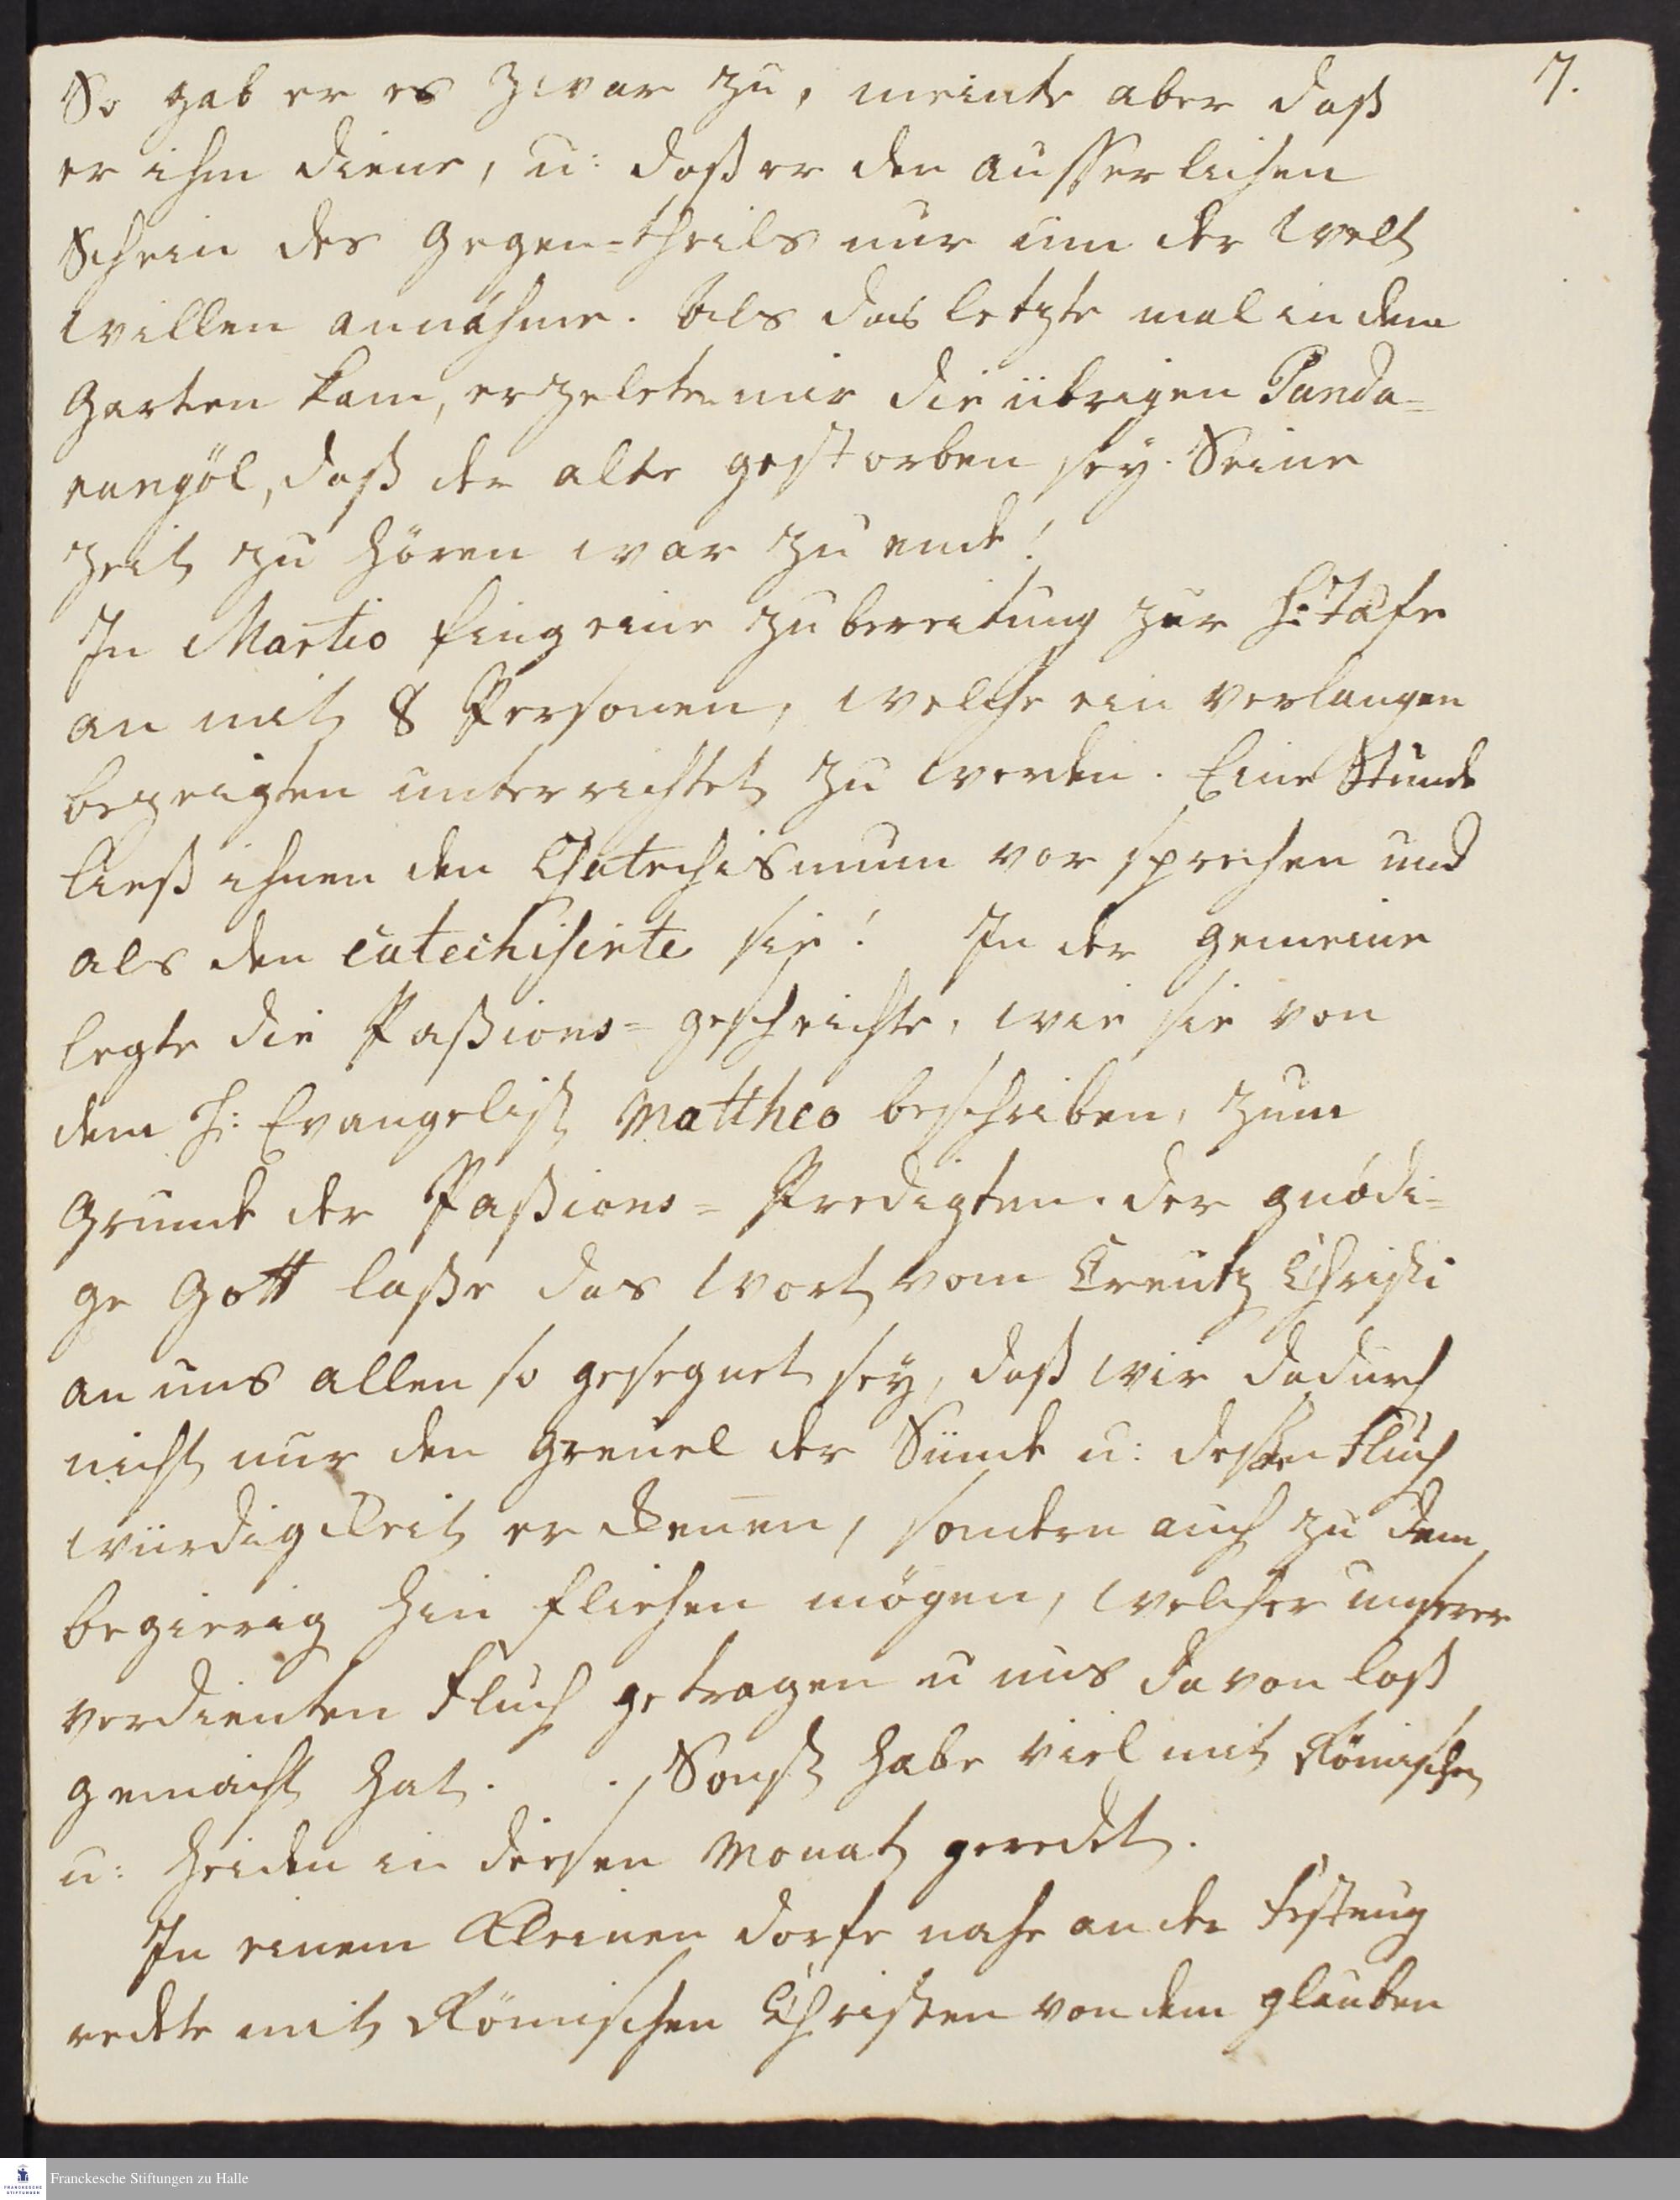 7.
So gab er es zwar zu, meinte aber daß
er ihm diene, u: daß er den ausserlichen
Schein des Gegen-theils nur um der Welt
willen annähme. Als das letzte mal in dem
Garten kam, erzelete mir die übrigen Panda-
rungöl, daß der alte gestorben sey. Seine
Zeit zu hören war zu ende!
In Martio fing eine zubereitung zur H: Taufe
an mit 8 Personen, welche ein verlangen
bezeigten unterrichtet zu werden. Eine Stunde
ließ ihnen den Chatechismum vor sprechen und
als den catechisirte sie! In der gemeine
legte die Paßions-geschichte, wie sie von
dem H: Evangelist Mattheo beschriben, zum
Grunde der Paßions-Predigten. der gnädi-
ge Gott laße das Wort vom Creutz Christi
an uns allen so gesegnet sey, daß wir dadurch
nicht nur den Greuel der Sünde u: deßen Fluch
würdigkeit erkenen, sondern auch zu dem
begierig hin fliehen mögen, welcher unseren
verdienten Fluch getragen u uns davon loß
gemacht hat. Sonst habe viel mit Römischen
u: Heiden in diesen Monat geredet.
In einem Kleinen dorfe nahe an der Festung
redete mit Römischen Christen von dem glauben
Franckesche Stiftungen zu Halle
FRANCKESCHE
STIFTUNGEN